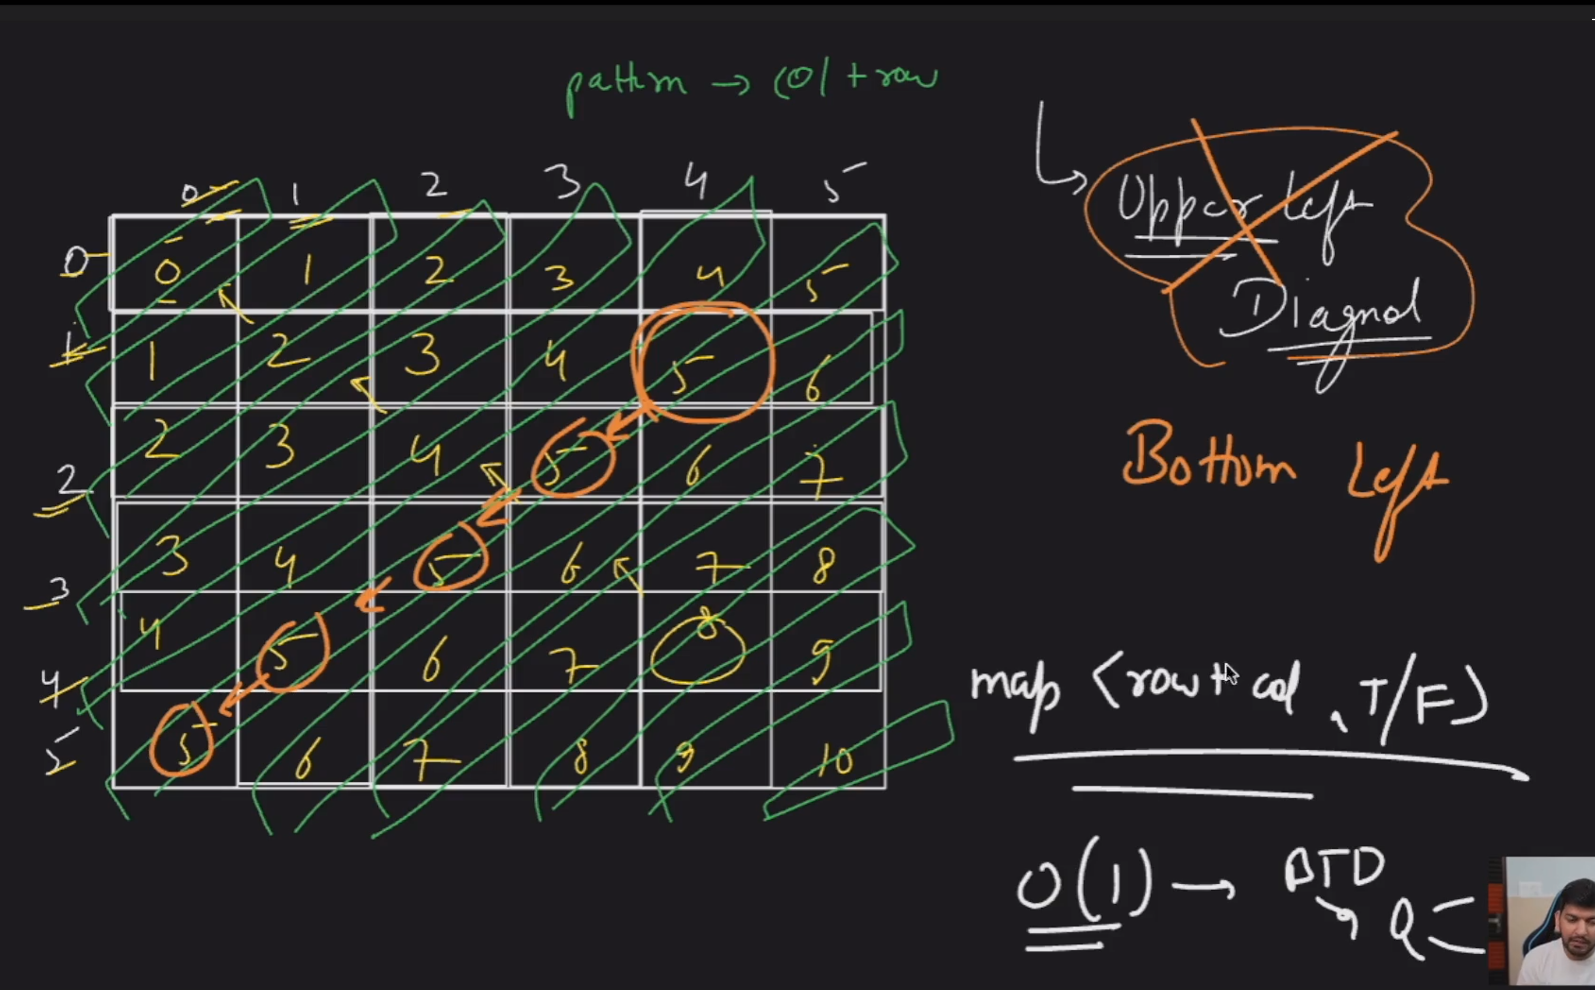 pattern → col + row
0 1 2 3 4 5
0 0 1 2 3 4 5
1 1 2 3 4 5 6
2 2 3 4 5 6 7
3 3 4 5 6 7 8
4 4 5 6 7 8 9
5 5 6 7 8 9 10
Upper Left
Diagnol
Bottom Left
map <row + col , T/F>
O(1) → BTD
Q